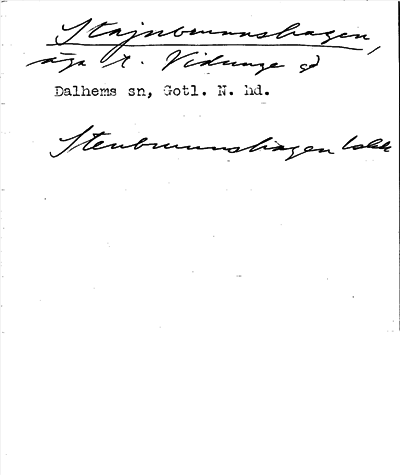 Stajnbrunnshagen,
äga t. Vidunge gd
Dalhems sn, Gotl. N. hd.
Stenbrunnshagen lokk